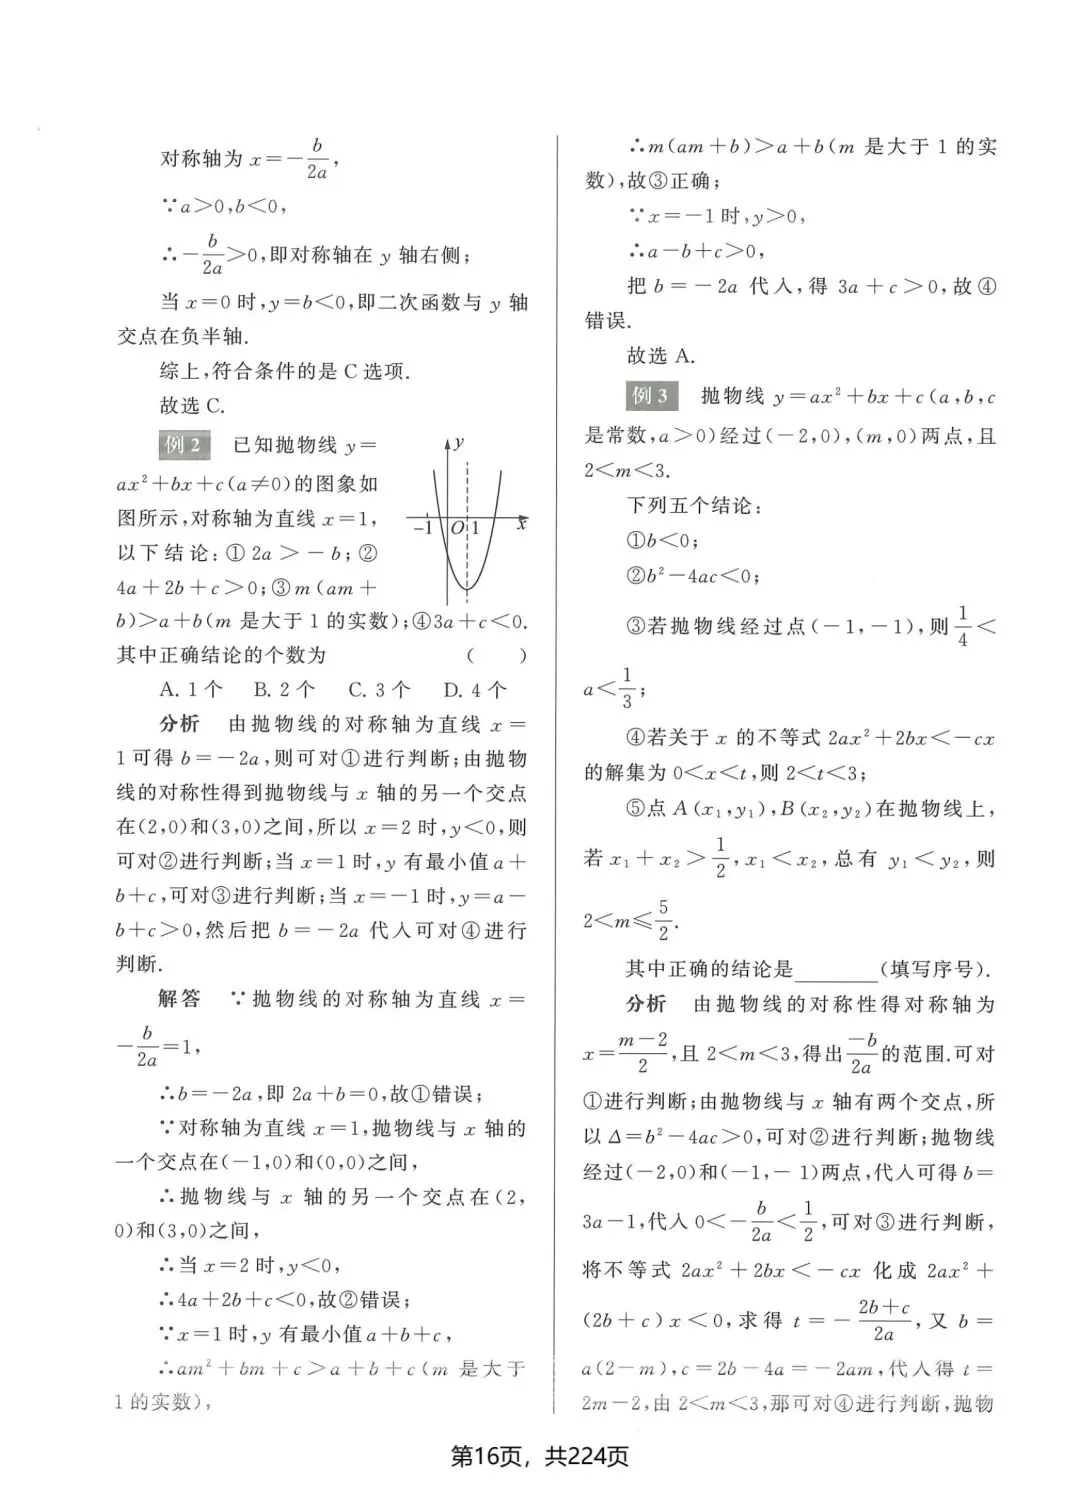 对称轴为 x=-b/2a,
∵a>0,b<0,
∴-b/2a>0,即对称轴在 y 轴右侧;
当 x=0 时,y=b<0,即二次函数与 y 轴
交点在负半轴.
综上,符合条件的是 C 选项.
故选 C.
例 2 已知抛物线 y=
ax²+bx+c(a≠0)的图象如
图所示,对称轴为直线 x=1,
以下结论:①2a>-b;②
4a+2b+c>0;③m(am+
b)>a+b(m 是大于 1 的实数);④3a+c<0.
其中正确结论的个数为 ( )
y
-1 O 1 x
A. 1 个 B. 2 个 C. 3 个 D. 4 个
分析 由抛物线的对称轴为直线 x=
1 可得 b=-2a,则可对①进行判断;由抛物
线的对称性得到抛物线与 x 轴的另一个交点
在(2,0)和(3,0)之间,所以 x=2 时,y<0,则
可对②进行判断;当 x=1 时,y 有最小值 a+
b+c,可对③进行判断;当 x=-1 时,y=a-
b+c>0,然后把 b=-2a 代入可对④进行
判断.
解答 ∵抛物线的对称轴为直线 x=
-b/2a=1,
∴b=-2a,即 2a+b=0,故①错误;
∵对称轴为直线 x=1,抛物线与 x 轴的
一个交点在(-1,0)和(0,0)之间,
∴抛物线与 x 轴的另一个交点在(2,
0)和(3,0)之间,
∴当 x=2 时,y<0,
∴4a+2b+c<0,故②错误;
∵x=1 时,y 有最小值 a+b+c,
∴am²+bm+c>a+b+c(m 是大于
1 的实数),
∴m(am+b)>a+b(m 是大于 1 的实
数),故③正确;
∵x=-1 时,y>0,
∴a-b+c>0,
把 b=-2a 代入,得 3a+c>0,故④
错误.
故选 A.
例 3 抛物线 y=ax²+bx+c(a,b,c
是常数,a>0)经过(-2,0),(m,0)两点,且
2<m<3.
下列五个结论:
①b<0;
②b²-4ac<0;
③若抛物线经过点(-1,-1),则1/4<
a<1/3;
④若关于 x 的不等式 2ax²+2bx<-cx
的解集为 0<x<t,则 2<t<3;
⑤点 A(x₁,y₁),B(x₂,y₂)在抛物线上,
若 x₁+x₂>1/2,x₁<x₂,总有 y₁<y₂,则
2<m≤5/2.
其中正确的结论是________(填写序号).
分析 由抛物线的对称性得对称轴为
x=(m-2)/2,且 2<m<3,得出-b/2a的范围.可对
①进行判断;由抛物线与 x 轴有两个交点,所
以 Δ=b²-4ac>0,可对②进行判断;抛物线
经过(-2,0)和(-1,-1)两点,代入可得 b=
3a-1,代入 0<-b/2a<1/2,可对③进行判断,
将不等式 2ax²+2bx<-cx 化成 2ax²+
(2b+c)x<0,求得 t=-(2b+c)/2a,又 b=
a(2-m),c=2b-4a=-2am,代入得 t=
2m-2,由 2<m<3,那可对④进行判断,抛物
第16页，共224页